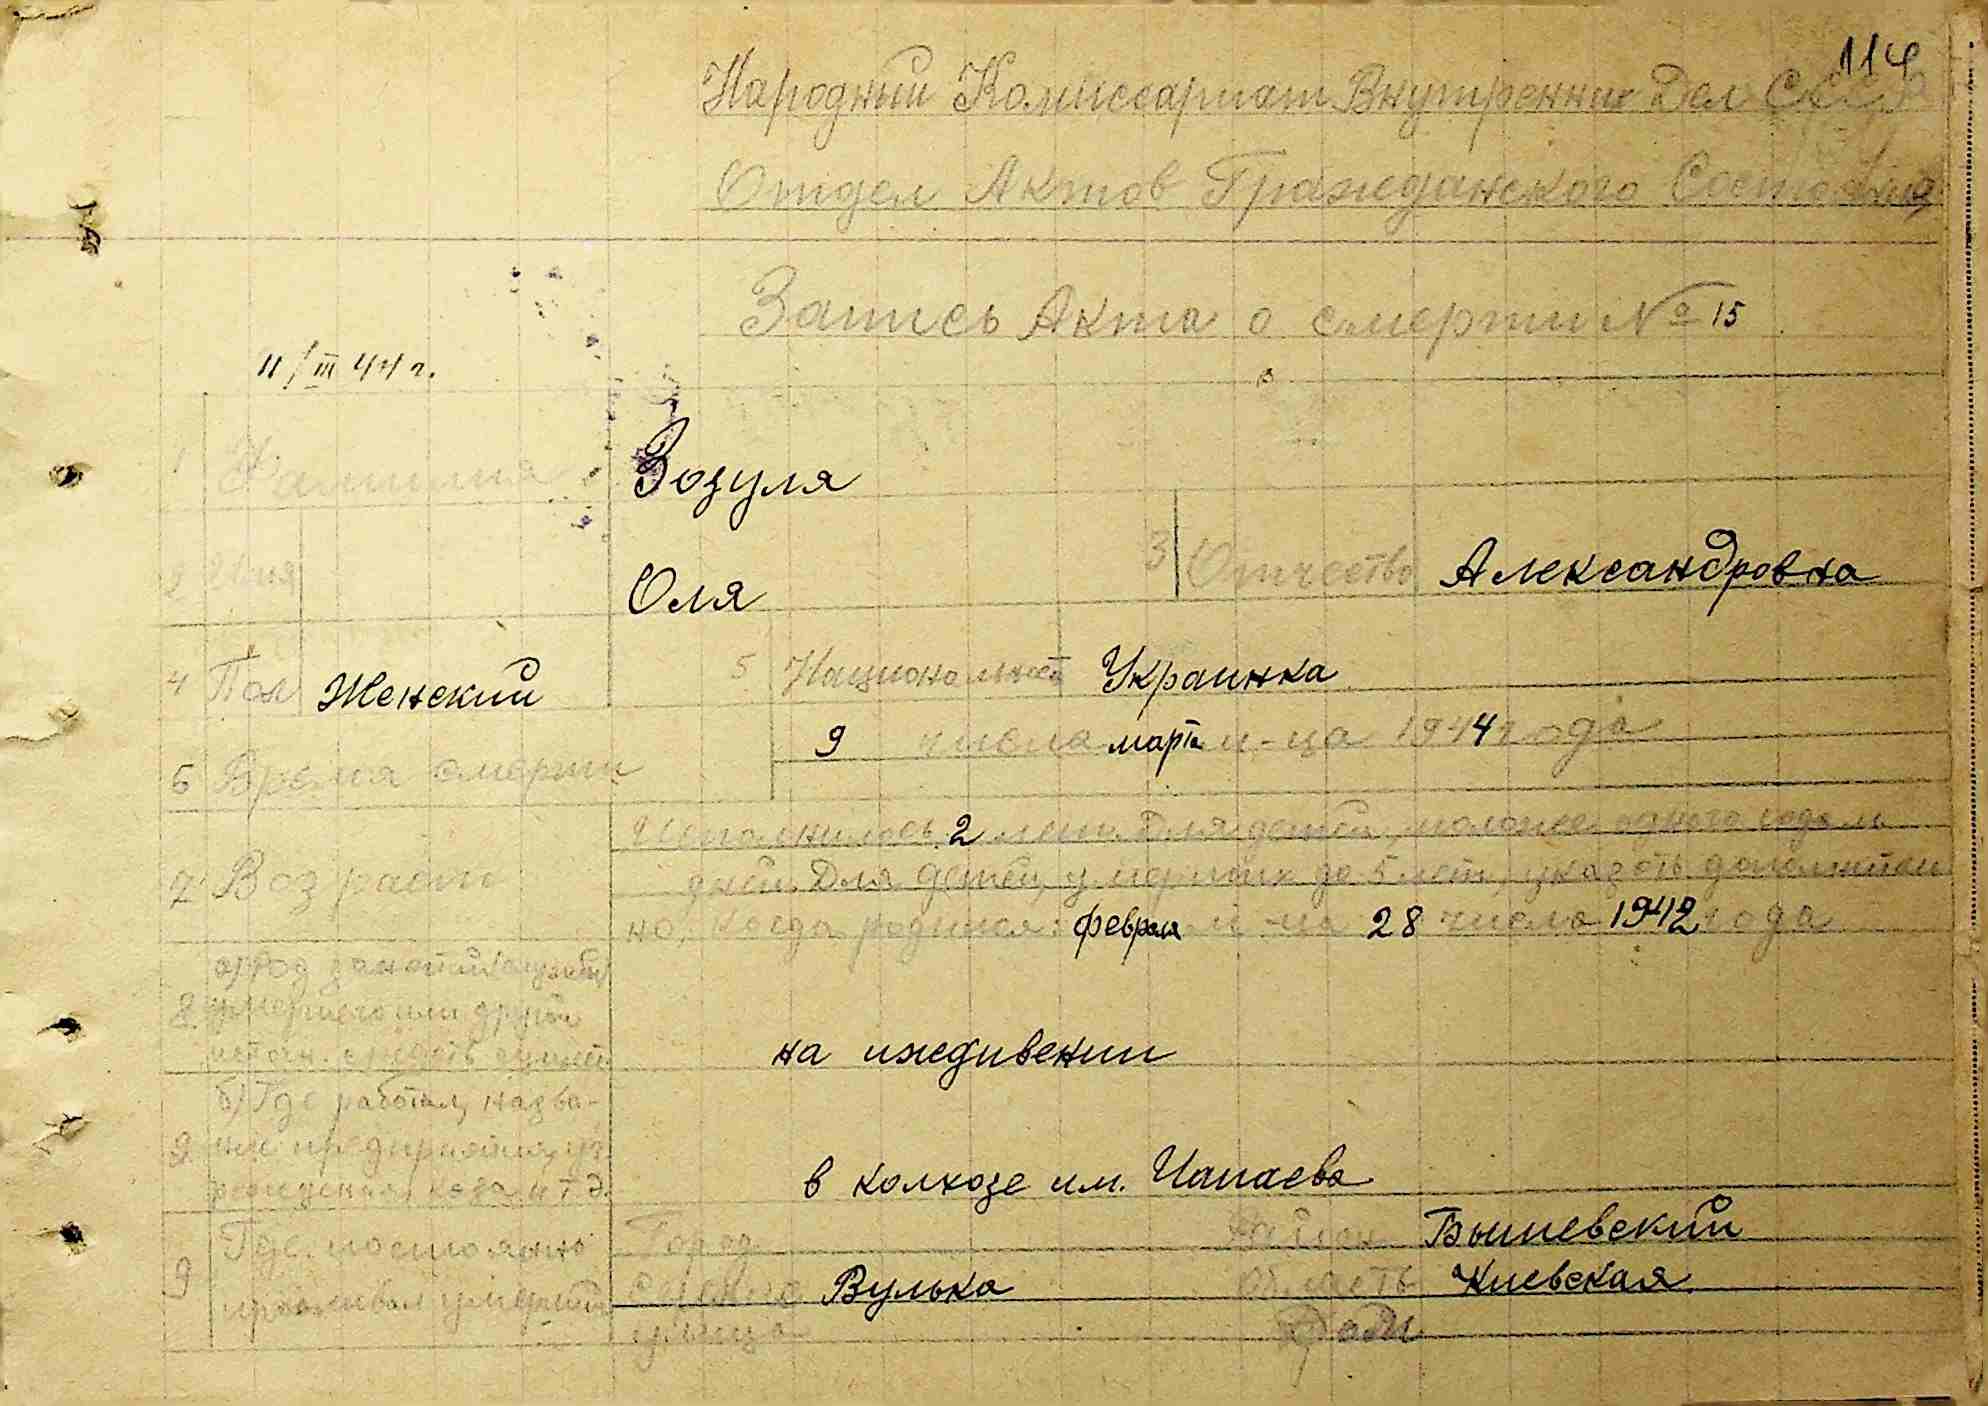 114
Народный Комиссариат Внутренних Дел СССР
Отдел Актов Гражданского Состояния
Запись Акта о смерти № 15
11/III 44 г.
1 Фамилия Зозуля
2 Имя Оля 3 Отчество Александровна
4 Пол Женский 5 Национальность Украинка
6 Время смерти 9 числа марта м-ца 1944 года
7 Возраст Исполнилось 2 лет. Для детей моложе одного года м
дней. Для детей, умерших до 5 лет, указать дополнитель
но, когда родился: февраля м-ца 28 числа 1942 года
8 а) Род занятий (службы)
умершего или другой
источн. средств сущест.
на иждивении
9 б) Где работал, назва-
ние предприятия, уч
реждения, колх. и т.д.
в колхозе им. Чапаева
9 Где постоянно
проживал умерший
Город Район Бышевский
Вулька Область Киевская
улица